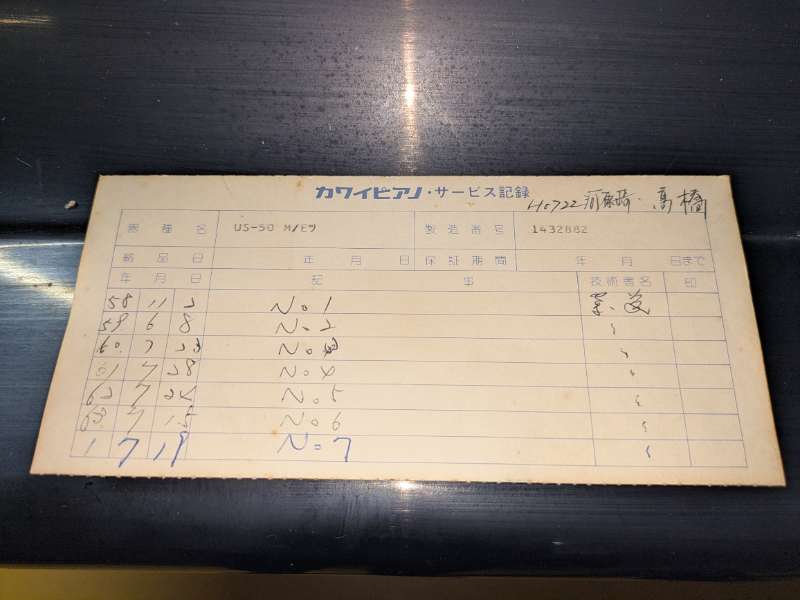 カワイピアノ・サービス記録
高橋
機種名 US-50 M/Eウ 製造番号 1432882
納品日 年 月 日 保証期間 年 月 日まで
年 月 日 記 事 技術者名 印
58 11 2 No 1
59 6 8 No 2 〃
60 7 23 No 〃
61 7 28 No 4 〃
62 7 No 5 〃
63 7 No 6 〃
1 7 19 No 7 〃